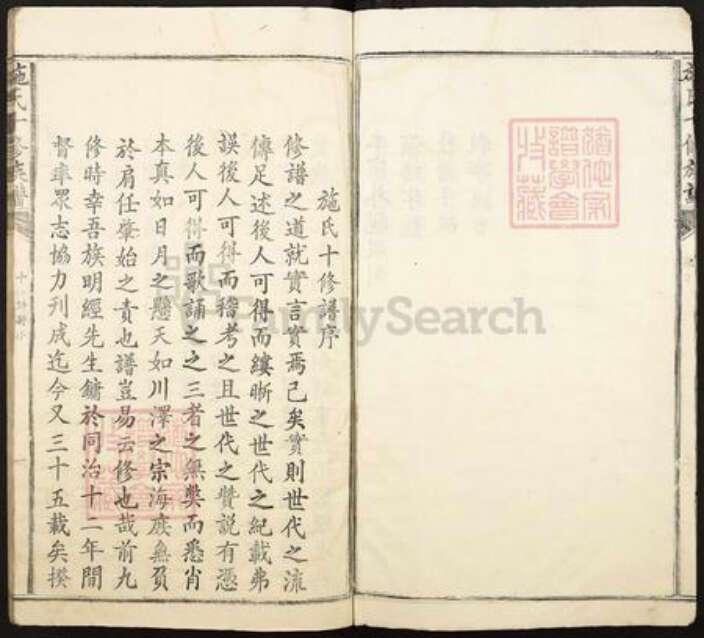 施氏十修譜序
修譜之道就實言實焉已矣實則世代之流
傳足述後人可得而縷晰之世代之紀載弗
誤後人可得而稽考之且世代之贊說有憑
後人可得而歌誦之之三者之無弊而悉肖
本真如日月之懸天如川澤之宗海庶無負
於肩任肇始之責也譜豈易云修也哉前九
修時幸吾族明經先生鏞於同治十二年間
督率眾志協力刋成迄今又三十五載矣揆
施氏十修族譜
施氏十修族譜
譜學會
收藏
FamilySearch